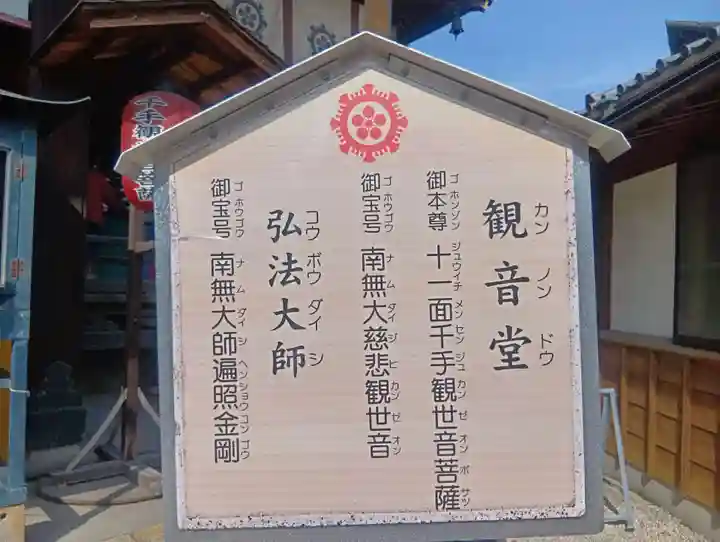 観音堂
カンノンドウ
御本尊 十一面千手観世音菩薩
ゴホンゾン ジュウイチメンセンジュカンゼオンボサツ
御宝号 南無大慈悲観世音
ゴホウゴウ ナムダイジヒカンゼオン
弘法大師
コウボウダイシ
御宝号 南無大師遍照金剛
ゴホウゴウ ナムダイシヘンショウコンゴウ
千手